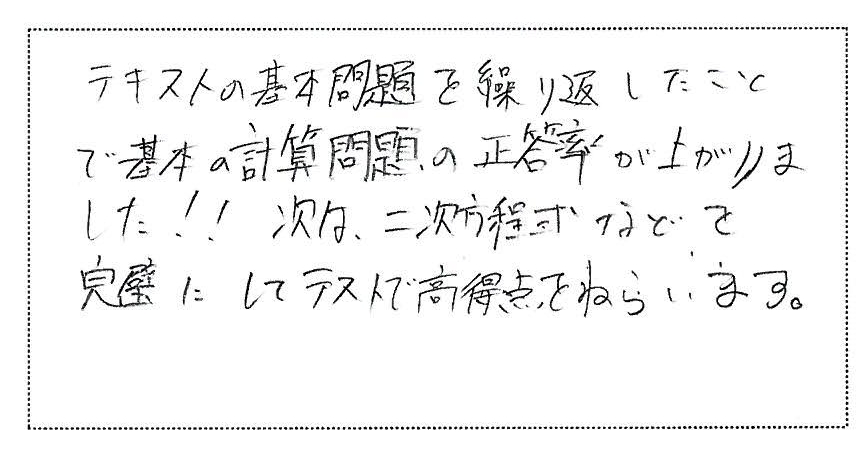 テキストの基本問題を繰り返したこと
で基本の計算問題の正答率が上がりま
した!! 次は、二次方程式などを
完璧にしてテストで高得点をねらいます。